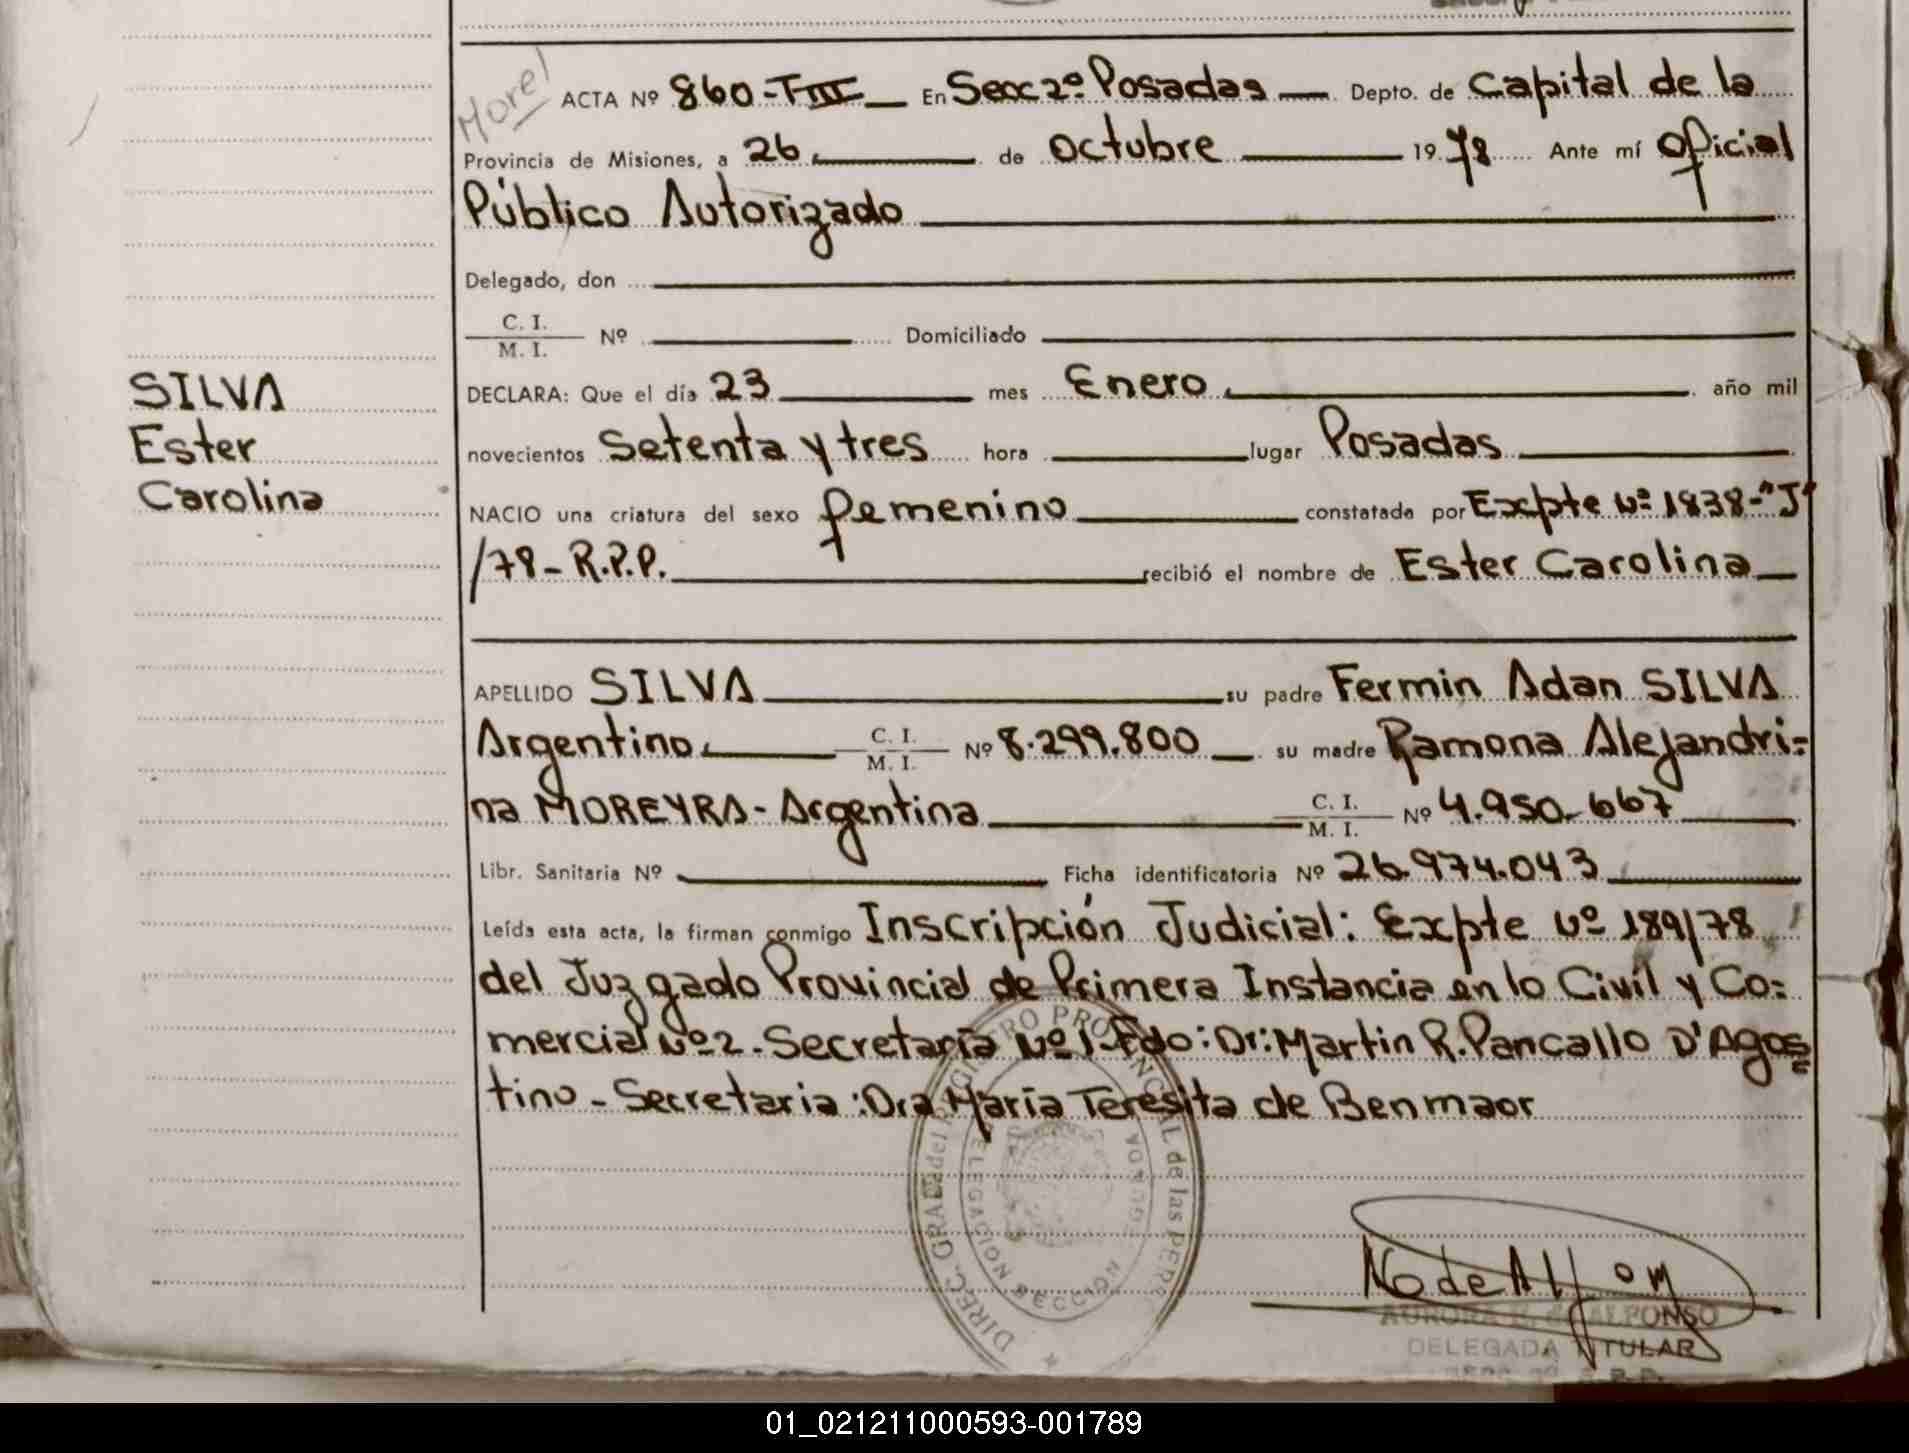 Morel
ACTA Nº 860-TIII En Secc 2º Posadas Depto. de Capital de la
Provincia de Misiones, a 26 de Octubre 19 78 Ante mí Oficial
Público Autorizado
Delegado, don
C. I.
M. I. Nº Domiciliado
SILVA
Ester
Carolina
DECLARA: Que el día 23 mes Enero año mil
novecientos Setenta y tres hora lugar Posadas
NACIO una criatura del sexo femenino constatada por Expte Nº 1838-"J"
/78-R.P.P. recibió el nombre de Ester Carolina
APELLIDO SILVA su padre Fermin Adan SILVA
Argentino C. I. M. I. Nº 8.299.800 su madre Ramona Alejandri=
na MOREYRA-Argentina C. I. M. I. Nº 4.950.667
Libr. Sanitaria Nº Ficha identificatoria Nº 26.974.043
Leída esta acta, la firman conmigo Inscripción Judicial: Expte Nº 189/78
del Juzgado Provincial de Primera Instancia en lo Civil y Co=
mercial Nº2-Secretaría Nº1-Fdo: Dr: Martin R. Pancallo D'Agos=
tino-Secretaria: Dra María Teresita de Benmaor
DIREC. GRAL. del REGISTRO PROVINCIAL de las PERS
DELEGACION SECCION SEGUNDA
AURORA DE ALFONSO
DELEGADA TITULAR
01_021211000593-001789